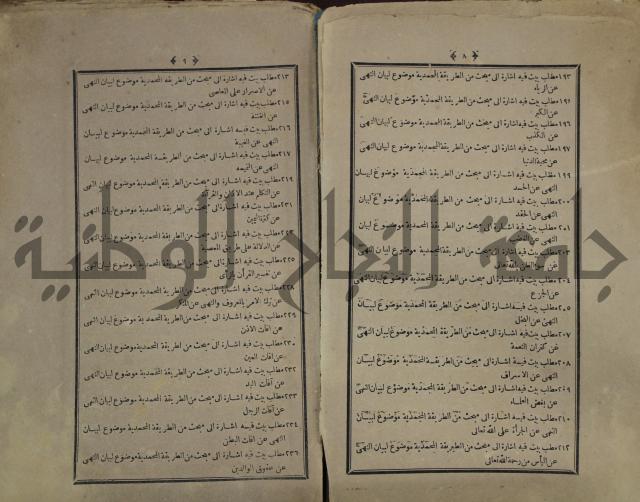 ﴿ ٨ ﴾
١٩٣ مطلب بيت فيه اشارة الى مبحث من الطريقة المحمدية موضوع لبيان النهى
عن الرياء
مطلب بيت فيه اشارة الى مبحث من الطريقة المحمدية موضوع لبيان النهى
عن الكبر
١٩٦ مطلب بيت فيه اشارة الى مبحث من الطريقة المحمدية موضوع لبيان النهى
عن
١٩٧ مطلب بيت فيه اشارة الى مبحث من الطريقة المحمدية موضوع لبيان النهى
عن محبة الدنيا
١٩٩ مطلب بيت فيه اشارة الى مبحث من الطريقة المحمدية موضوع لبيان
النهى عن الحسد
٢٠٠ مطلب بيت فيه اشارة الى مبحث من الطريقة المحمدية موضوع لبيان
النهى عن الحقد
٢٠١ مطلب بيت فيه اشارة الى مبحث من الطريقة المحمدية موضوع لبيان
النهى عن
مطلب بيت فيه اشارة الى مبحث من الطريقة المحمدية موضوع لبيان
النهى عن سوء الظن بالله تعالى
٢٠٤ مطلب بيت فيه اشارة الى مبحث من الطريقة المحمدية موضوع لبيان النهى
عن الجزع
٢٠٥ مطلب بيت فيه اشارة الى مبحث من الطريقة المحمدية موضوع لبيان
النهى عن البخل
٢٠٧ مطلب بيت فيه اشارة الى مبحث من الطريقة المحمدية موضوع لبيان النهى
عن كفران النعمة
٢٠٨ مطلب بيت فيه اشارة الى مبحث من الطريقة المحمدية موضوع لبيان
النهى عن الاسراف
٢٠٩ مطلب بيت فيه اشارة الى مبحث من الطريقة المحمدية موضوع لبيان النهى
عن بغض العلماء
٢١٠ مطلب بيت فيه اشارة الى مبحث من الطريقة المحمدية موضوع لبيان
النهى عن الجرأة على الله تعالى
٢١٢ مطلب بيت فيه اشارة الى مبحث من الطريقة المحمدية موضوع لبيان النهى
عن اليأس من رحمة الله تعالى
﴿ ٩ ﴾
٢١٣ مطلب بيت فيه اشارة الى مبحث من الطريقة المحمدية موضوع لبيان النهى
عن الاصرار على المعاصى
٢١٥ مطلب بيت فيه اشارة الى مبحث من الطريقة المحمدية موضوع لبيان النهى
عن الفتنة
٢١٦ مطلب بيت فيه اشارة الى مبحث من الطريقة المحمدية موضوع لبيان
النهى عن الغيبة
٢١٧ مطلب بيت فيه اشارة الى مبحث من الطريقة المحمدية موضوع لبيان
النهى عن النميمه
٢١٩ مطلب بيت فيه اشارة الى مبحث من الطريقة المحمدية موضوع لبيان النهى
عن التكلم عند الاذان والقرآن
٢٢١ مطلب بيت فيه اشارة الى مبحث من الطريقة المحمدية موضوع لبيان النهى
عن كثرة اليمين
٢٢٣ مطلب بيت فيه اشارة الى مبحث من الطريقة المحمدية موضوع لبيان النهى
عن الدلالة على طريق المعصية
٢٢٥ مطلب بيت فيه اشارة الى مبحث من الطريقة المحمدية موضوع لبيان النهى
عن تفسير القرآن بالرأى
٢٢٨ مطلب بيت فيه اشارة الى مبحث من الطريقة المحمدية موضوع لبيان النهى
عن ترك الامر بالمعروف والنهى عن المنكر
٢٢٩ مطلب بيت فيه اشارة الى مبحث من الطريقة المحمدية موضوع لبيان النهى
عن افات الاذن
٢٣٠ مطلب بيت فيه اشارة الى مبحث من الطريقة المحمدية موضوع لبيان النهى
عن افات العين
٢٣٢ مطلب بيت فيه اشارة الى مبحث من الطريقة المحمدية موضوع لبيان النهى
عن آفات اليد
٢٣٣ مطلب بيت فيه اشارة الى مبحث من الطريقة المحمدية موضوع لبيان النهى
عن آفات الرجل
٢٣٤ مطلب بيت فيه اشارة الى مبحث من الطريقة المحمدية موضوع لبيان
النهى عن افات البطن
٢٣٦ مطلب بيت فيه اشارة الى مبحث من الطريقة المحمدية موضوع لبيان النهى
عن عقوق الوالدين
جامعة النجاح الوطنية